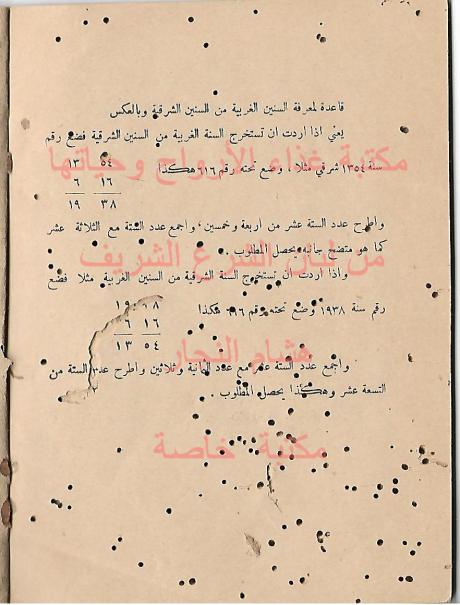 قاعدة لمعرفة السنين الغربية من السنين الشرقية وبالعكس
يعني اذا اردت ان تستخرج السنة الغربية من السنين الشرقية فضع رقم
مكتبة غذاء الأرواح وحياتها
سنة ١٣٥٤ شرقي مثلا ، وضع تحته رقم ٦١٦ هكذا
١٣ ٥٤
٦ ١٦
١٩ ٣٨
واطرح عدد الستة عشر من اربعة وخمسين ، واجمع عدد الستة مع الثلاثة عشر
كما هو متضح جانبه يحصل المطلوب .
من لبان الشرع الشريف
واذا اردت ان تستخرج السنة الشرقية من السنين الغربية مثلا فضع
رقم سنة ١٩٣٨ وضع تحته رقم ٦١٦ هكذا
١٩ ٣٨
٦ ١٦
١٣ ٥٤
هشام النجار
واجمع عدد الستة عشر مع عدد الثمانية وثلاثين واطرح عدد الستة من
التسعة عشر وهكذا يحصل المطلوب .
مكتبة خاصة